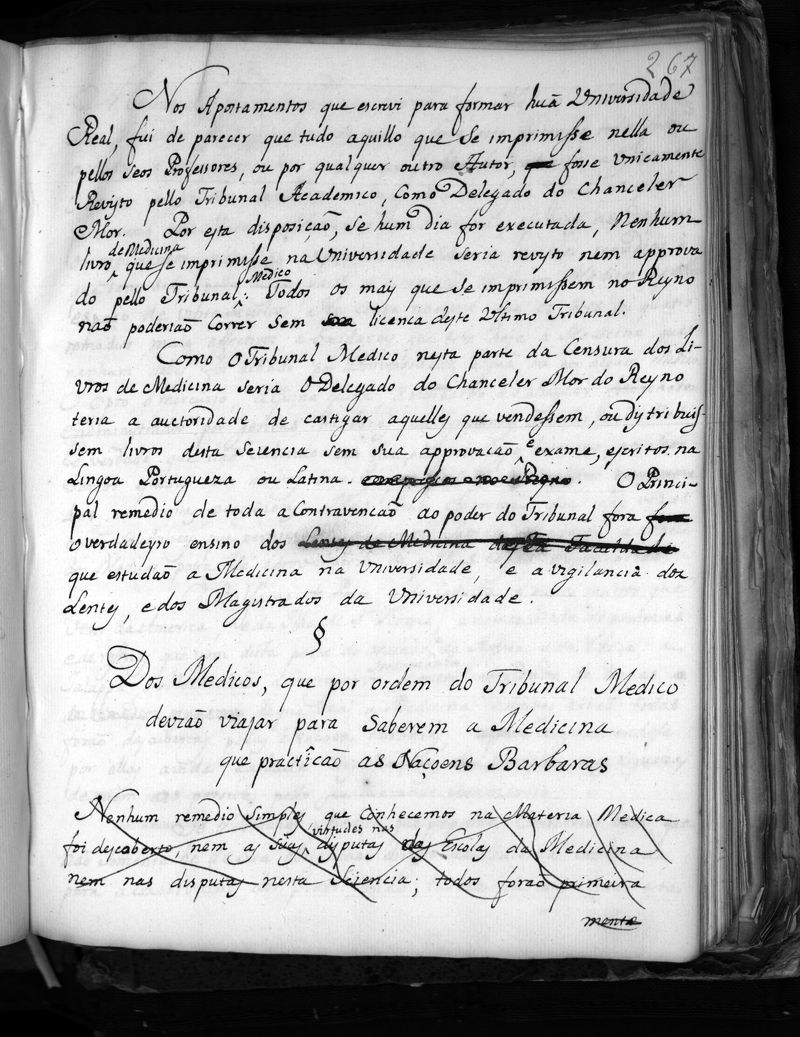 267
Nos Apontamentos que escrevi para formar huã Universidade
Real, fui de parecer que tudo aquillo que se imprimisse nella ou
pellos seos Professores, ou por qualquer outro Autor, que fosse unicamente
Revisto pello Tribunal Academico, como Delegado do Chanceler
Mor. Por esta disposição, se hum dia for executada, nenhum
de Medicina
livro que se imprimisse na Universidade seria revisto nem approva
Medico
do pello Tribunal; Todos os mais que se imprimissem no Reyno
naõ poderiaõ correr sem licenca deste ultimo Tribunal.
Como o Tribunal Medico nesta parte da Censura dos Li-
vros de Medicina seria o Delegado do Chanceler Mor do Reyno
teria a auctoridade de castigar aquelles que vendessem, ou distribuis-
sem livros desta sciencia sem sua approvacaõ e exame, escritos na
Lingoa Portugueza ou Latina. O Princi-
pal remedio de toda a contravencaõ ao poder do Tribunal fora fora
o verdadeyro ensino dos Lentes de Medicina desta Faculdade
que estudaõ a Medicina na Universidade, e a vigilancia dos
Lentes, e dos Magistrados da Universidade.
§
Dos Medicos, que por ordem do Tribunal Medico
deviaõ viajar para saberem a Medicina
que practicaõ as Naçoens Barbaras
Nenhum remedio simples que conhecemos na Materia Medica
virtudes nas
foi descoberto, nem as suas disputas das Escolas da Medicina
nem nas disputas nesta sciencia; todos foraõ primeira
mente